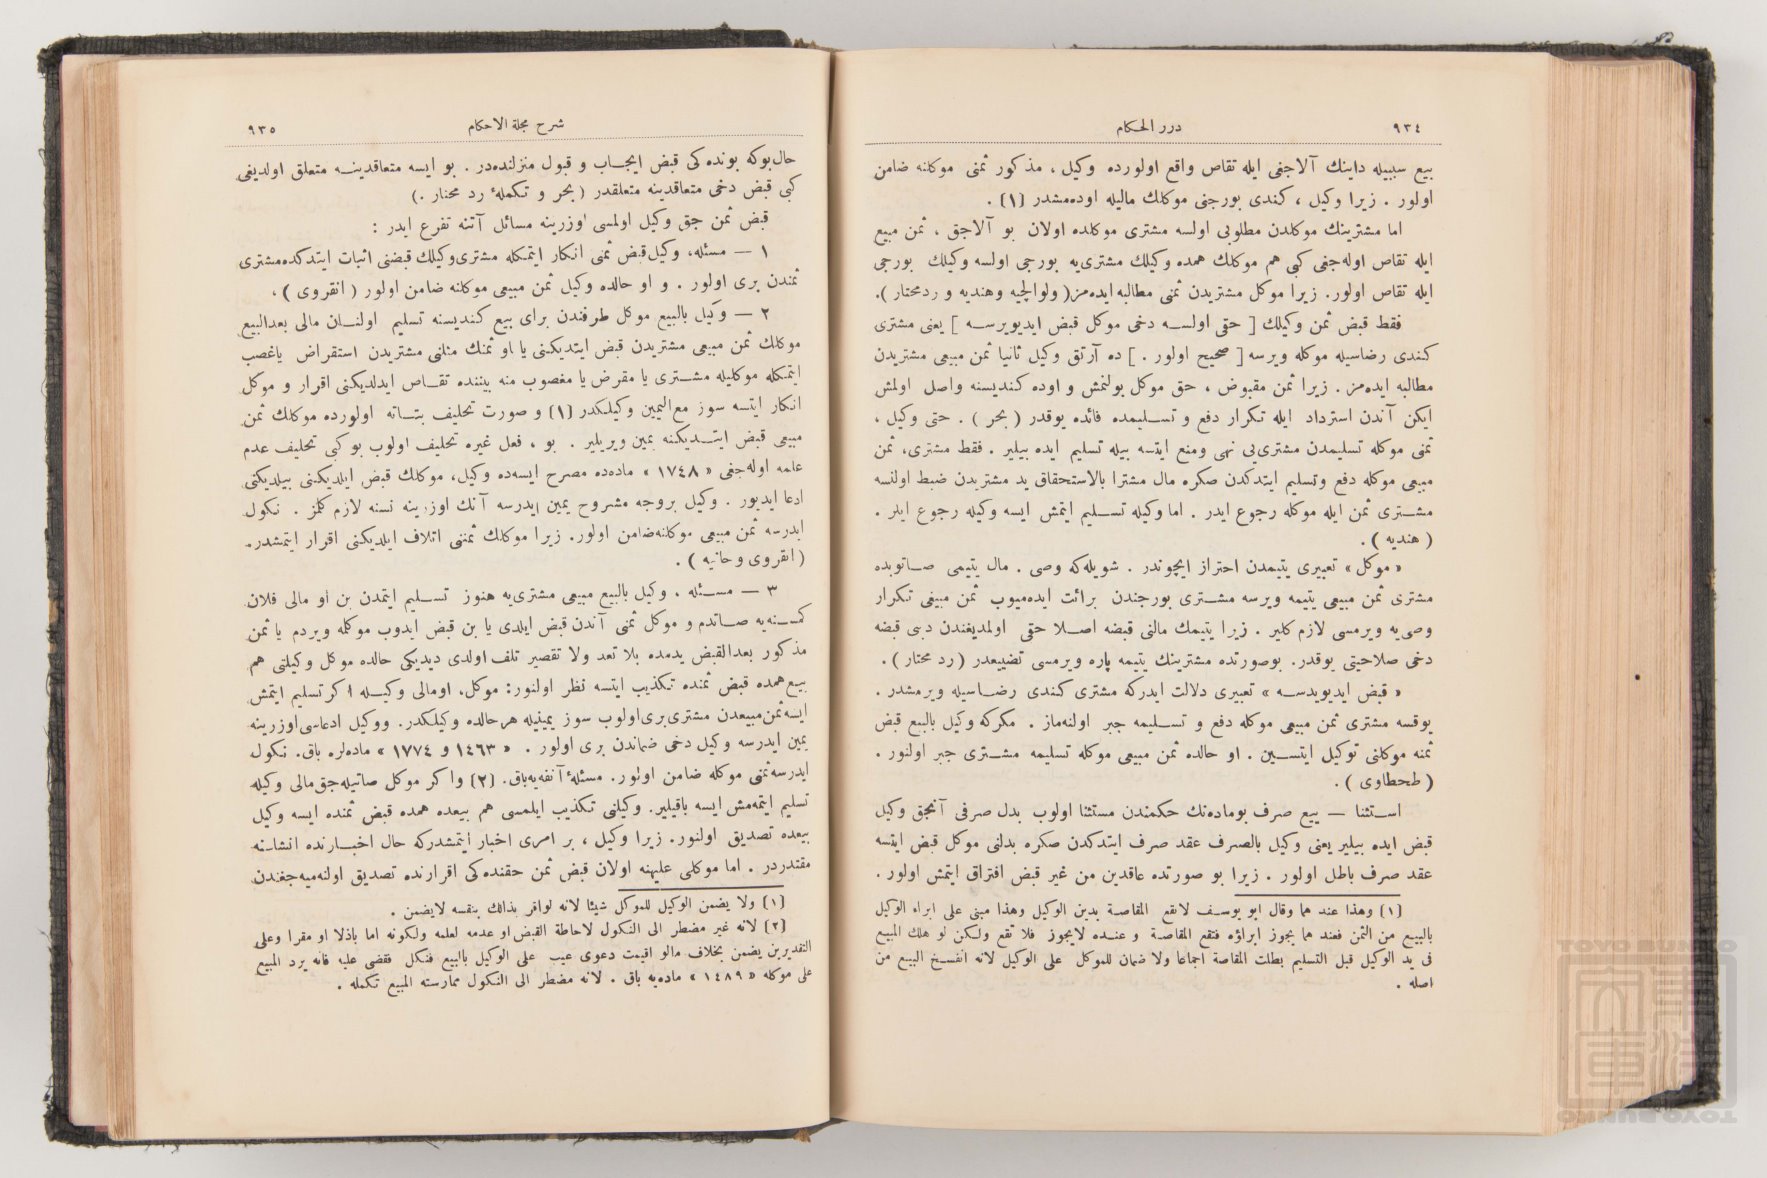 ٩٣٤
درر الحكام
بيع سببيله داينك آلاجغى ايله تقاص واقع اولورده وكيل ، مذكور ثمنى موكلنه ضامن
اولور . زيرا وكيل ، كندى بورجنى موكلك ماليله اوده‌مشدر (١) .
اما مشترينك موكلدن مطلوبى اولسه مشترى موكلده اولان بو آلاجق ، ثمن مبيع
ايله تقاص اوله‌جغى كبى هم موكلك همده وكيلك مشترى‌يه بورجى اولسه وكيلك بورجى
ايله تقاص اولور. زيرا موكل مشتريدن ثمنى مطالبه ايده‌مز( ولوالجيه وهنديه و ردمختار ).
فقط قبض ثمن وكيلك [ حتى اولسه دخى موكل قبض ايديويرسه ] يعنى مشترى
كندى رضاسيله موكله ويرسه [ صحيح اولور . ] ده آرتق وكيل ثانيا ثمن مبيعى مشتريدن
مطالبه ايده‌مز . زيرا ثمن مقبوض ، حق موكل بولنمش و اوده كنديسنه واصل اولمش
ايكن آندن استرداد ايله تكرار دفع و تسليمده فائده يوقدر ( بحر ) . حتى وكيل ،
ثمنى موكله تسليمدن مشترى‌يى نهى ومنع ايتسه بيله تسليم ايده بيلير . فقط مشترى، ثمن
مبيعى موكله دفع وتسليم ايتدكدن صكره مال مشترا بالاستحقاق يد مشتريدن ضبط اولنسه
مشترى ثمن ايله موكله رجوع ايدر . اما وكيله تسليم ايتمش ايسه وكيله رجوع ايلر .
( هنديه ) .
« موكل » تعبيرى يتيمدن احتراز ايچوندر . شويله‌كه وصى . مال يتيمى صاتوبده
مشترى ثمن مبيعى يتيمه ويرسه مشترى بورجندن برائت ايده‌ميوب ثمن مبيعى تكرار
وصى‌يه ويرمسى لازم كلير . زيرا يتيمك مالنى قبضه اصلا حقى اولمديغندن دينى قبضه
دخى صلاحيتى يوقدر. بوصورتده مشترينك يتيمه پاره ويرمسى تضييعدر (رد مختار ) .
« قبض ايديويرسه » تعبيرى دلالت ايدركه مشترى كندى رضاسيله ويرمشدر .
يوقسه مشترى ثمن مبيعى موكله دفع و تسليمه جبر اولنه‌ماز . مكركه وكيل بالبيع قبض
ثمنه موكلنى توكيل ايتسين . او حالده ثمن مبيعى موكله تسليمه مشترى جبر اولنور .
( طحطاوى ) .
استثنا — بيع صرف بوماده‌نك حكمندن مستثنا اولوب بدل صرفى آنجق وكيل
قبض ايده بيلير يعنى وكيل بالصرف عقد صرف ايتدكدن صكره بدلنى موكل قبض ايتسه
عقد صرف باطل اولور . زيرا بو صورتده عاقدين من غير قبض افتراق ايتمش اولور .
(١) وهذا عند هما وقال ابو يوسف لاتقع المقاصة بدين الوكيل وهذا مبنى على ابراء الوكيل
بالبيع من الثمن فعند هما يجوز ابراؤه فتقع المقاصة و عنده لايجوز فلا تقع ولكن لو هلك المبيع
فى يد الوكيل قبل التسليم بطلت المقاصة اجماعا ولا ضمان للموكل على الوكيل لانه انفسخ البيع من
اصله .
شرح مجلة الاحكام
٩٣٥
حال‌بوكه بونده‌كى قبض ايجاب و قبول منزلنده‌در . بو ايسه متعاقدينه متعلق اولديغى
كبى قبض دخى متعاقدينه متعلقدر ( بحر و تكملۀ رد مختار .)
قبض ثمن حق وكيل اولمسى اوزرينه مسائل آتيه تفرع ايدر :
١ — مسئله، وكيل قبض ثمنى انكار ايتمكله مشترى وكيلك قبضنى اثبات ايتدكده مشترى
ثمندن برى اولور . و او حالده وكيل ثمن مبيعى موكلنه ضامن اولور ( انقروى ) .
٢ — وكيل بالبيع موكل طرفندن براى بيع كنديسنه تسليم اولنان مالى بعدالبيع
موكلك ثمن مبيعى مشتريدن قبض ايتديكنى يا او ثمنك مثلنى مشتريدن استقراض ياغصب
ايتمكله موكليله مشترى يا مقرض يا مغصوب منه بيننده تقاص ايدلديكنى اقرار و موكل
انكار ايتسه سوز مع‌اليمين وكيلكدر (١) و صورت تحليف بتاته اولورده موكلك ثمن
مبيعى قبض ايتديكنه يمين ويريلير . بو ، فعل غيره تحليف اولوب بو كبى تحليف عدم
علمه اوله‌جغى « ١٧٤٨ » ماده‌ده مصرح ايسه‌ده وكيل، موكلك قبض ايلديكنى بيلديكنى
ادعا ايديور . وكيل بروجه مشروح يمين ايدرسه آنك اوزرينه نسنه لازم كلمز . نكول
ايدرسه ثمن مبيعى موكلنه ضامن اولور. زيرا موكلك ثمننى اتلاف ايلديكنى اقرار ايتمشدر.
( انقروى و خانيه ) .
٣ — مسئله ، وكيل بالبيع مبيعى مشترى‌يه هنوز تسليم ايتمدن بن او مالى فلان
كمسنه‌يه صاتدم و موكل ثمنى آندن قبض ايلدى يا بن قبض ايدوب موكله ويردم يا ثمن
مذكور بعدالقبض يدمده بلا تعد ولا تقصير تلف اولدى ديديكى حالده موكل وكيلنى هم
بيع همده قبض ثمنده تكذيب ايتسه نظر اولنور: موكل، اومالى وكيله اكر تسليم ايتمش
ايسه ثمن مبيعدن مشترى برى اولوب سوز يمينيله هر حالده وكيلكدر. ووكيل ادعاسى اوزرينه
يمين ايدرسه وكيل دخى ضماندن برى اولور . « ١٤٦٣ و ١٧٧٤ » ماده‌لره باق. نكول
ايدرسه ثمنى موكله ضامن اولور. مسئلۀ آنفه‌يه باق. (٢) واكر موكل صاتيله‌جق مالى وكيله
تسليم ايتمه‌مش ايسه باقيلير. وكيلنى تكذيب ايلمسى هم بيعده همده قبض ثمنده ايسه وكيل
بيعده تصديق اولنور. زيرا وكيل ، بر امرى اخبار ايتمشدركه حال اخبارنده انشاسنه
مقتدردر . اما موكلى عليهنه اولان قبض ثمن حقنده‌كى اقرارنده تصديق اولنه‌ميه‌جغندن
(١) ولا يضمن الوكيل للموكل شيئا لانه لواقر بذالك بنفسه لايضمن .
(٢) لانه غير مضطر الى النكول لاحاطة القبض او عدمه لعلمه ولكونه اما باذلا او مقرا وعلى
التقديرين يضمن بخلاف مالو اقيمت دعوى عيب على الوكيل بالبيع فنكل فقضى عليه فانه يرد المبيع
على موكله « ١٤٨٩ » ماده‌يه باق . لانه مضطر الى النكول ممارسته المبيع تكمله .
TOYO BUNKO